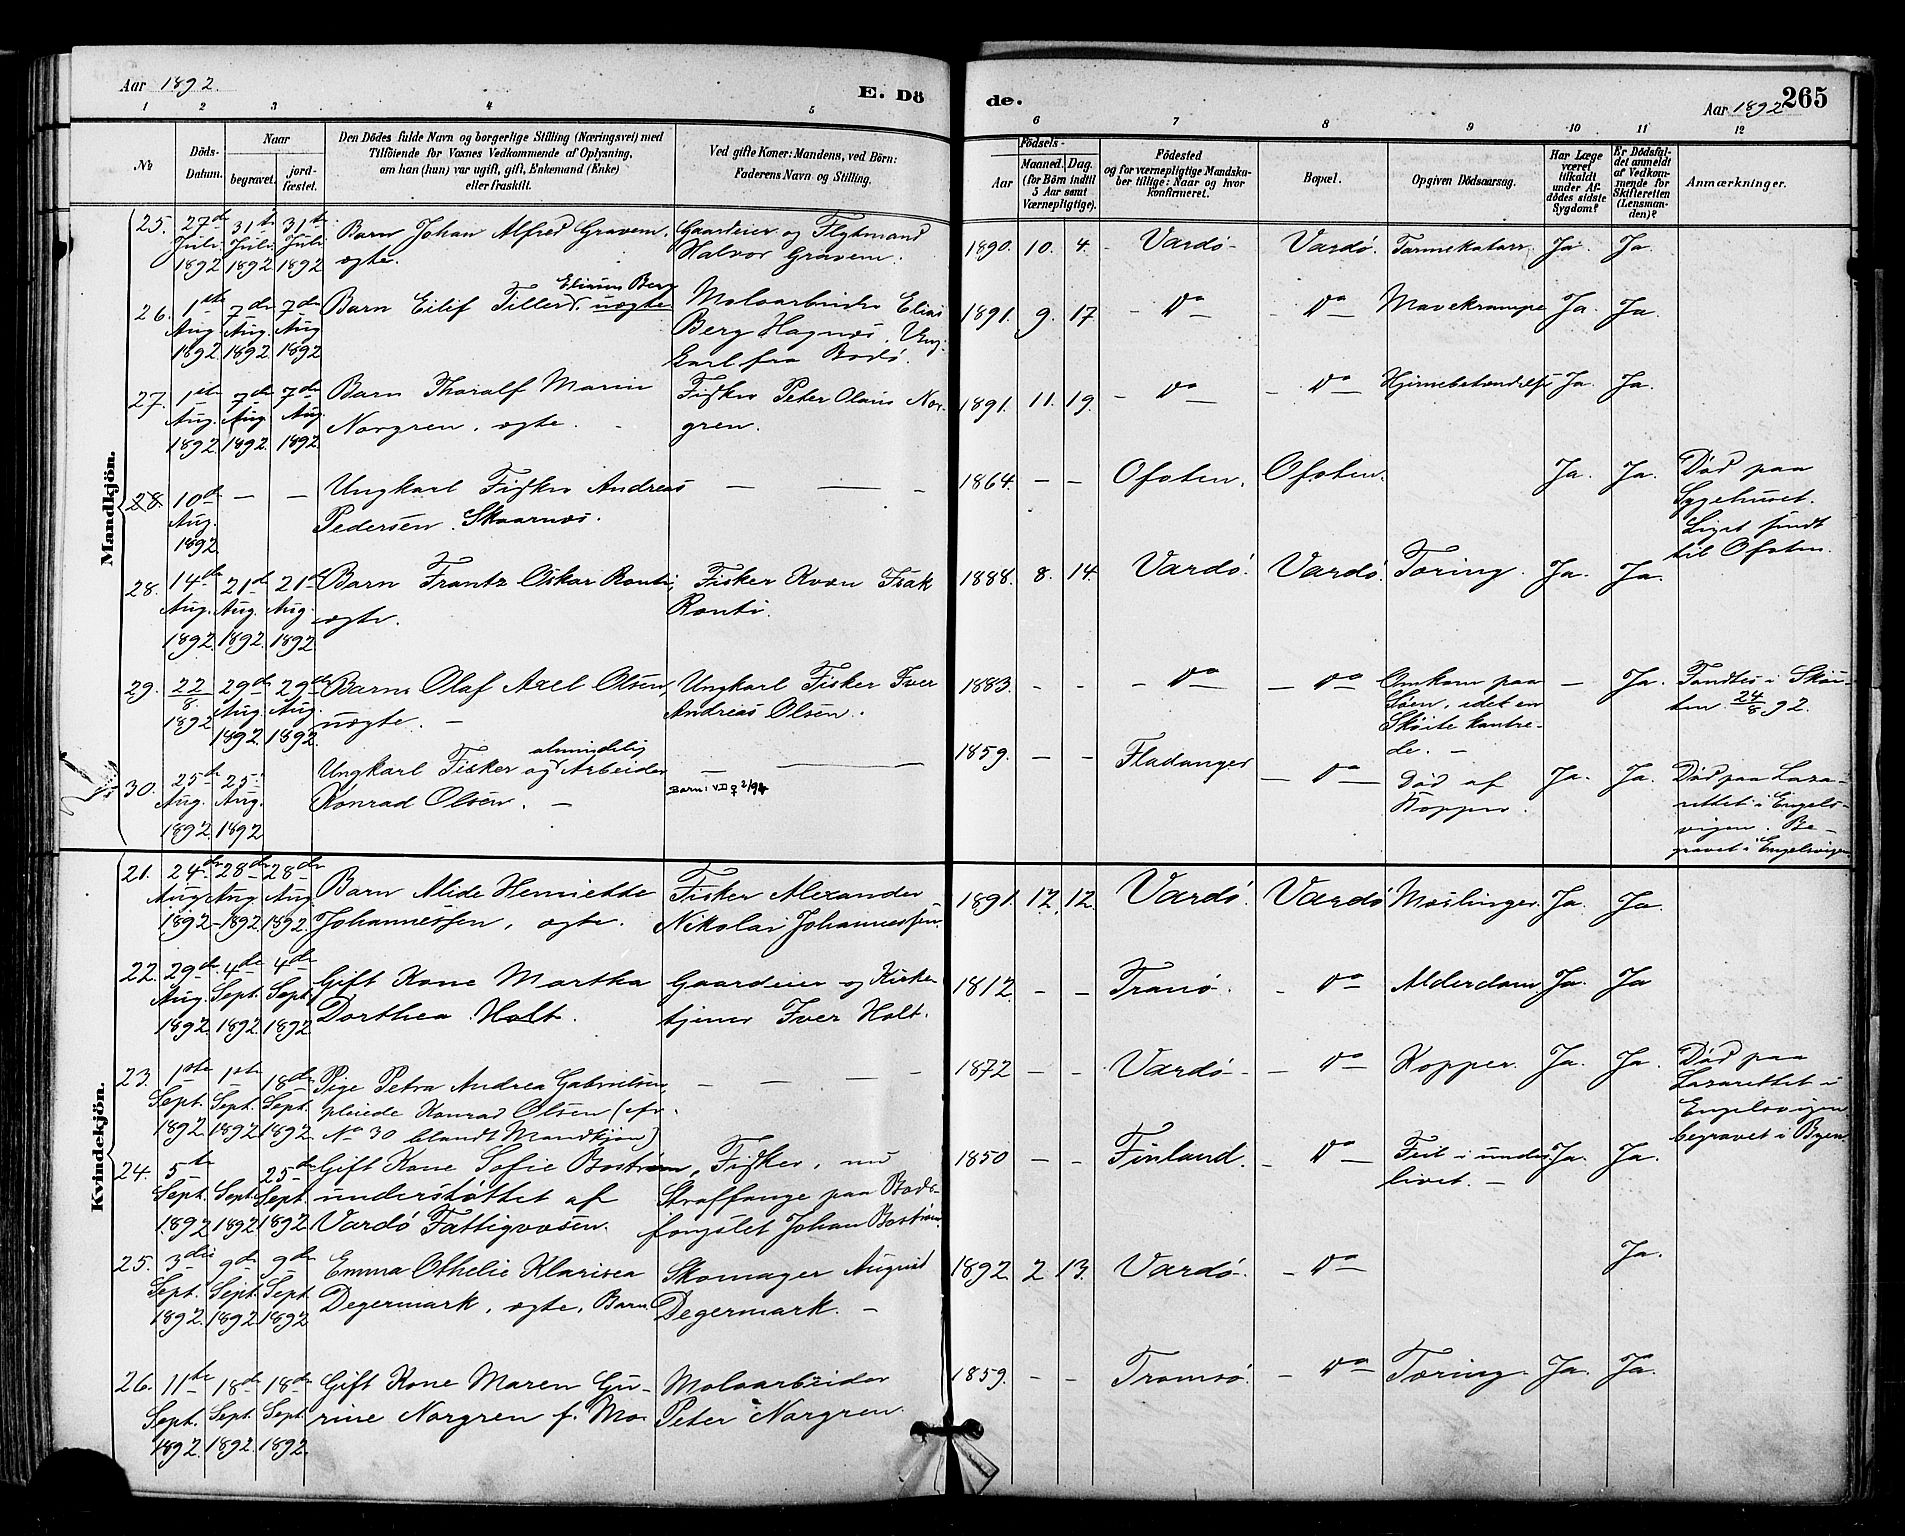 Aar 1892.
E. Dö
de.
Aar 1892
265
1 2 3 4 5 6 7 8 9 10 11 12
No
Döds-Datum.
Naar
begravet.
jord-fæstet.
Den Dödes fulde Navn og borgerlige Stilling (Næringsvei) med
Tilföiende for Voxnes Vedkommende af Oplysning,
om han (hun) var ugift, gift, Enkemand (Enke)
eller fraskilt.
Ved gifte Koner: Mandens, ved Börn:
Faderens Navn og Stilling.
Födsels-
Aar
Maaned. Dag.
(for Börn indtil
5 Aar samt
Værnepligtige).
Födested
og for værnepligtige Mandska-
ber tillige: Naar og hvor
konfirmeret.
Bopæl.
Opgiven Dödsaarsag.
Har Læge
været
tilkaldt
under Af-
dödes sidste
Sygdom?
Er Dödsfal-
det anmeldt
af Vedkom-
mende for
Skifteretten
(Lensman-
den)?
Anmærkninger.
Mandkjön.
25. 27de Juli 1892 31te Juli 1892 31te Juli 1892 Barn Johan Alfred Gravem, ægte. Gaardeier og Flytmand Halvor Gravem. 1890. 10. 4. - Vardö - Vardö. Tarmekatarr. Ja. Ja.
26. 1ste Aug. 1892 7de Aug. 1892 7de Aug 1892 Barn Eilif Tiller uægte Elisius Berg Moloarbeider Elias Berg Hagnæs, Ungkarl fra Bodö. 1891. 9. 17. - Do - Do Mavekrampe Ja. Ja.
27. 1ste Aug. 1892 7de Aug. 1892 7de Aug. 1892 Barn Tharalf Marin Norgren, ægte. Fisker Peter Olaus Norgren. 1891. 11. 19. - Do - Do Hjernebetændelse Ja. Ja.
28. 10de Aug. 1892 — — Ungkarl Fisker Andreas Pedersen Skaarnæs. — — - 1864. - - Ofoten. Ofoten. Ja. Ja. Död paa Sygehuset. Liget sendt til Ofoten.
28. 14de Aug. 1892 21de Aug. 1892 21de Aug. 1892 Barn Frantz Oskar Ronti, ægte. Fisker Kvæn Isak Ronti. 1888. 8. 14. Vardö. Vardö. Tæring. Ja. Ja.
29. 22/8 1892 29de Aug. 1892 29de Aug. 1892 Barn Olaf Axel Olsen, uægte. — Ungkarl Fisker Iver Andreas Olsen. 1883. - - - Do - Do Omkom paa Söen, idet en Sköite kantrede. — — Ja. Fandtes i Sköiten 24/8 92.
30. 25de Aug. 1892 25. Aug. 1892 Ungkarl Fisker og almindelig Arbeider Konrad Olsen. — — — Barn: V.D ♀ 2/94 1859. - - Fladanger - Do Död af Kopper. Ja. Ja. Död paa Lazarettet i Engelsvigen. Begravet i Engelsvigen
Kvindekjön.
21. 24de Aug. 1892 28de Aug. 1892 28de Aug. 1892 Barn Alide Henriette Johannessen, ægte. Fisker Alexander Nikolai Johannessen. 1891. 12. 12. Vardö. Vardö Mæslinger. Ja. Ja.
22. 29de Aug. 1892 4de Sept. 1892 4de Sept. 1892 Gift Kone Martha Dorthea Holt. Gaardeier og Kirketjener Iver Holt. 1812. - - Tranö. - Do Alderdom. Ja. Ja
23. 1ste Sept. 1892 1ste Sept. 1892 18de Sept. 1892 Pige Petra Andrea Gabrielsen, pleiede Konrad Olsen (cfr. No 30 blandt Mandkjön) — — — - 1872 - - Vardö - - Do Kopper. Ja. Ja. Död paa Lazarettet i Engelsvigen begravet i Byen
24. 5te Sept. 1892 Sept. 1892 25de Sept. 1892 Gift Kone Sofie Boström, understöttet af Vardö Fattigvæsen. Fisker, nu Straffange paa Bodsfængslet Johan Boström. 1850 - - Finland. - Do Feil i underlivet. — Ja. Ja.
25. 3die Sept. 1892 9de Sept. 1892 9de Sept. 1892 Emma Othelie Klarissa Degermark, ægte, Barn. Skomager August Degermark. — 1892 2 13. Vardö. - Do Ja.
26. 11te Sept. 1892 18de Sept. 1892. 18de Sept. 1892. Gift Kone Maren Gurine Norgren f. Mo. Moloarbeider Peter Norgren. 1859. - - Tromsö. - Do Tæring. Ja. Ja.